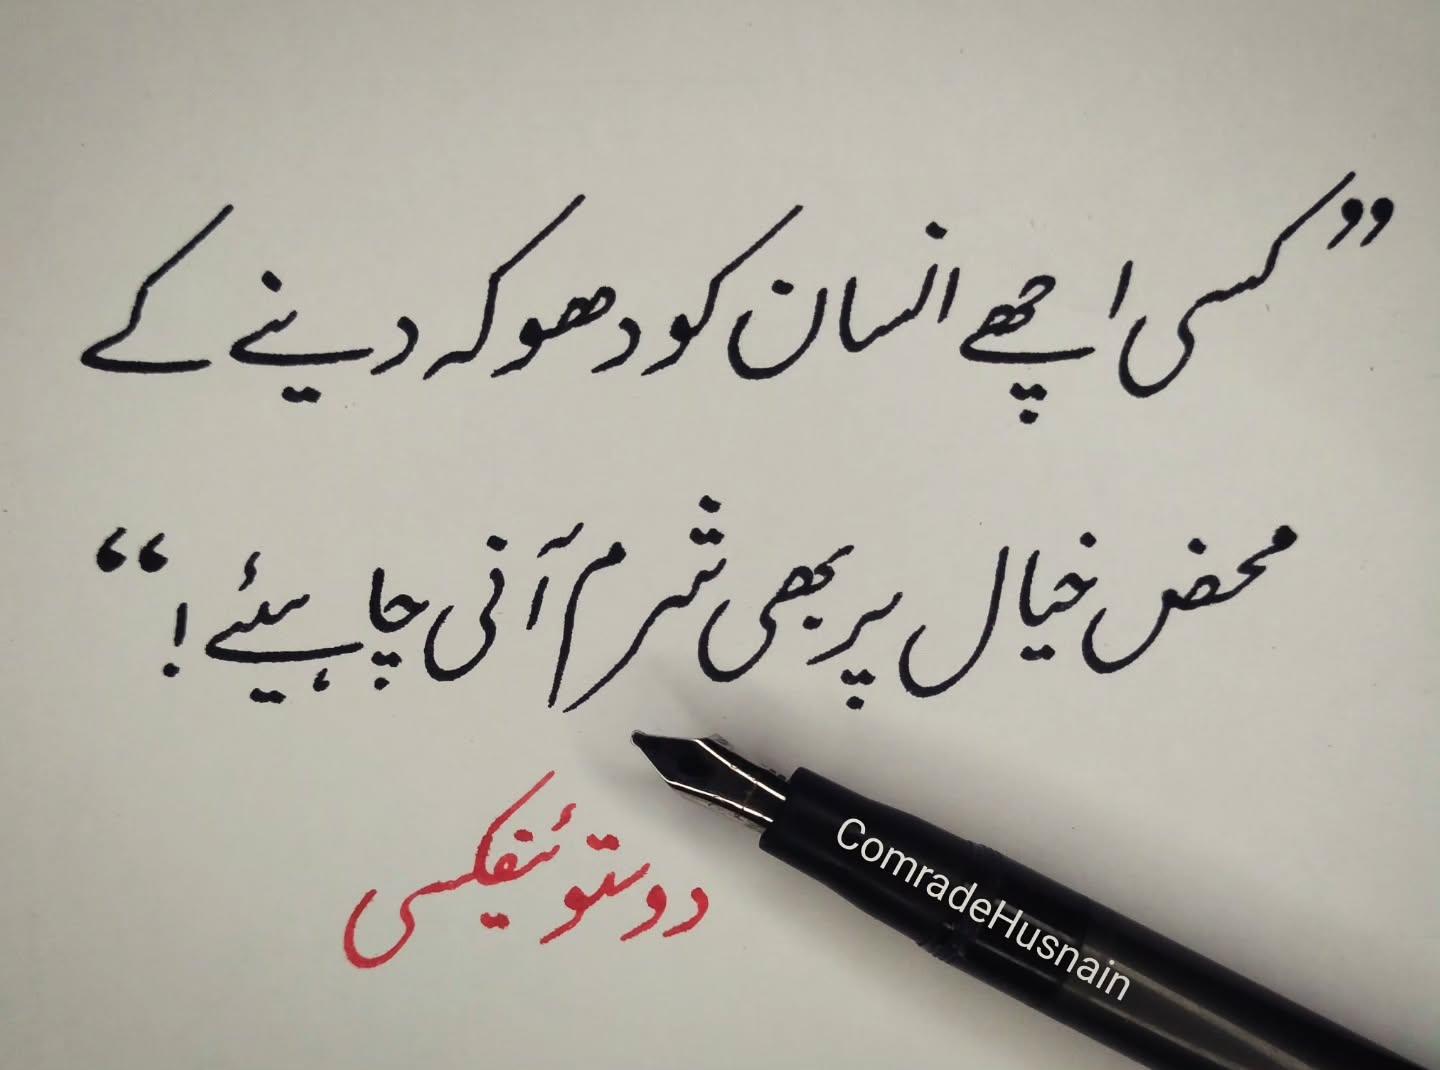 ”کسی اچھے انسان کو دھوکہ دینے کے
محض خیال پر بھی شرم آنی چاہیئے !“
دوستوئیفکسی
ComradeHusnain